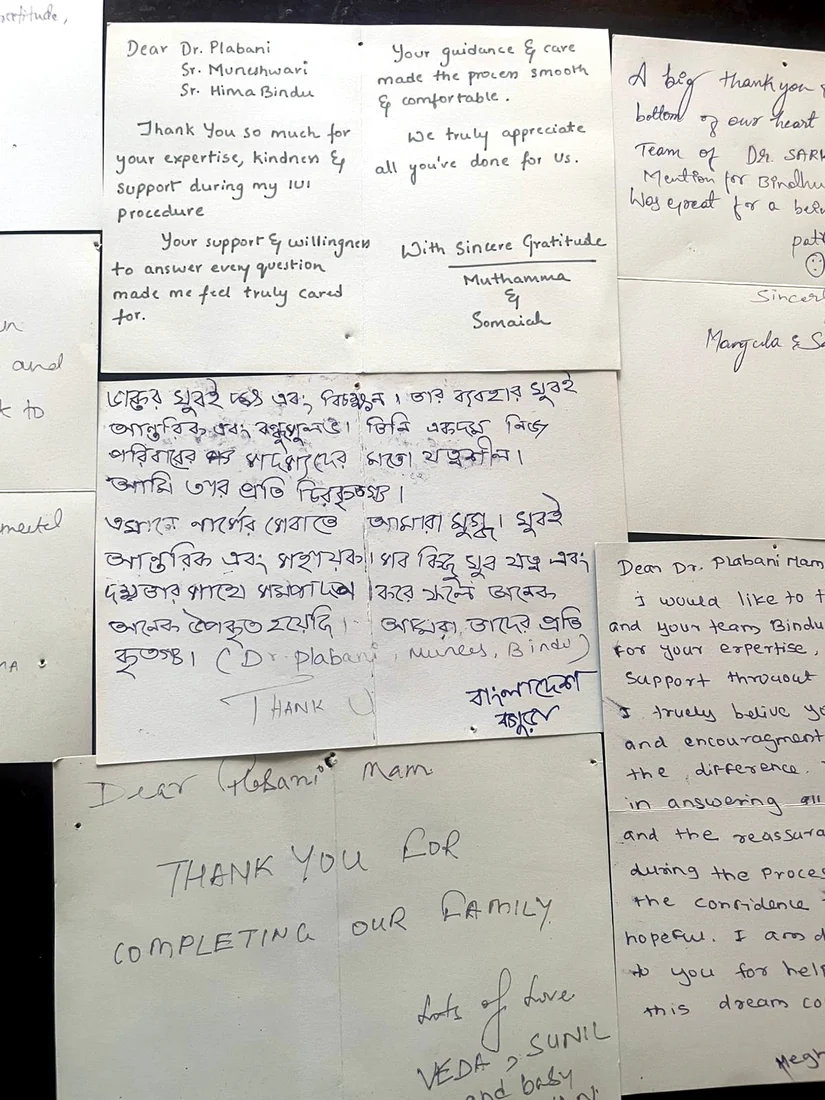 Dear Dr. Plabani
Sr. Muneshwari
Sr. Hima Bindu
Thank You so much for
your expertise, kindness &
support during my IUI
procedure
Your support & willingness
to answer every question
made me feel truly cared
for.
Your guidance & care
made the process smooth
& comfortable.
We truly appreciate
all you've done for us.
With Sincere Gratitude
Muthamma
&
Somaiah
A big thank you
bottom of our heart
Team of Dr. SAR
Mention for Bindhu
Was great for a bei
pat
Sincerl
Mangula & S
and
to
ডাক্তার খুবই দক্ষ এবং বিচক্ষন। তার ব্যবহার খুবই
আন্তরিক এবং বন্ধুসুলভ। তিনি একদম নিজ
পরিবারের সদস্যদের মতো যত্নশীল।
আমি তার প্রতি চিরকৃতজ্ঞ।
এখানে নার্সের সেবাতে আমারা মুগ্ধ। খুবই
আন্তরিক এবং সহায়ক। সব কিছু খুব যত্ন এবং
দক্ষতার সাথে সমপাদন করে ফলে অনেক
অনেক উপকৃত হয়েছি। আমরা তাদের প্রতি
কৃতজ্ঞ। (Dr. Plabani, Munees, Bindu)
THANK U
বাংলাদেশ
বগুড়া
Dear Plabani Mam
THANK YOU FOR
COMPLETING OUR FAMILY
Lots of Love
VEDA, SUNIL
and baby
Dear Dr. Plabani Mam
I would like to t
and your team Bindu
for your expertise,
support throuout
I truely belive yo
and encouragment
the difference.
in answering all
and the reassura
during the Proces
the confidence
hopeful. I am d
to you for hel
this dream co
Megh